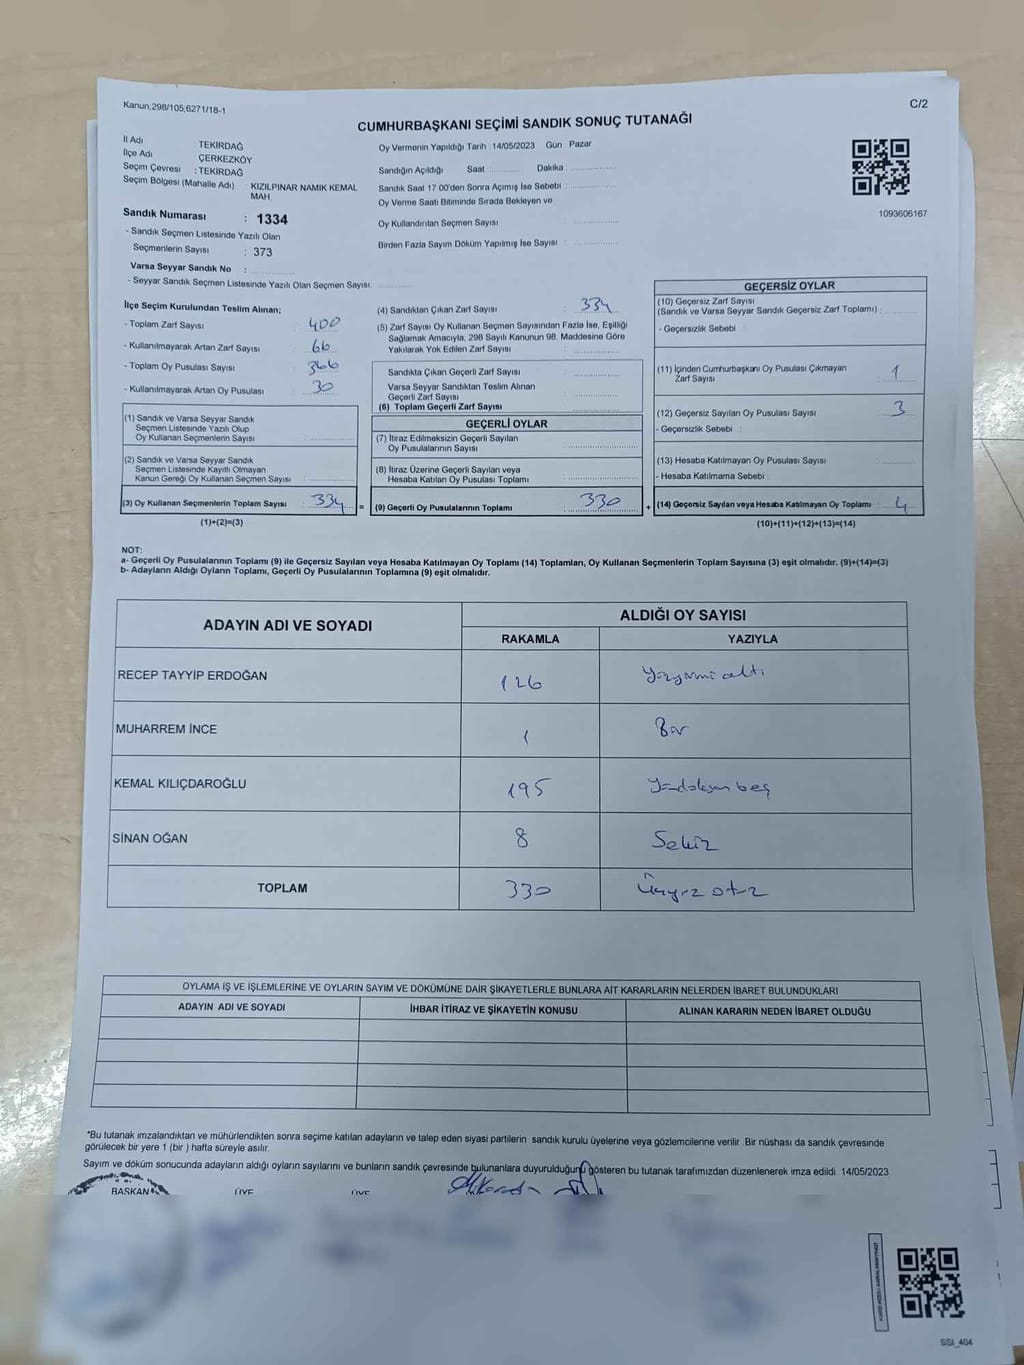 Kanun;298/105;6271/18-1
C/2
CUMHURBAŞKANI SEÇİMİ SANDIK SONUÇ TUTANAĞI
İl Adı : TEKİRDAĞ
İlçe Adı ÇERKEZKÖY
Seçim Çevresi : TEKİRDAĞ
Seçim Bölgesi (Mahalle Adı) KIZILPINAR NAMIK KEMAL
MAH.
Sandık Numarası : 1334
- Sandık Seçmen Listesinde Yazılı Olan
Seçmenlerin Sayısı : 373
Varsa Seyyar Sandık No :
- Seyyar Sandık Seçmen Listesinde Yazılı Olan Seçmen Sayısı:
Oy Vermenin Yapıldığı Tarih : 14/05/2023 Gün Pazar
Sandığın Açıldığı Saat Dakika
Sandık Saat 17:00'den Sonra Açımış İse Sebebi :
Oy Verme Saati Bitiminde Sırada Bekleyen ve
Oy Kullandırılan Seçmen Sayısı :
Birden Fazla Sayım Döküm Yapılmış İse Sayısı :
1093606167
İlçe Seçim Kurulundan Teslim Alınan;
- Toplam Zarf Sayısı 400
- Kullanılmayarak Artan Zarf Sayısı 66
- Toplam Oy Pusulası Sayısı 366
- Kullanılmayarak Artan Oy Pusulası 30
(1) Sandık ve Varsa Seyyar Sandık
Seçmen Listesinde Yazılı Olup
Oy Kullanan Seçmenlerin Sayısı
(2) Sandık ve Varsa Seyyar Sandık
Seçmen Listesinde Kayıtlı Olmayan
Kanun Gereği Oy Kullanan Seçmen Sayısı
(3) Oy Kullanan Seçmenlerin Toplam Sayısı 334 =
(1)+(2)=(3)
(4) Sandıktan Çıkan Zarf Sayısı : 334
(5) Zarf Sayısı Oy Kullanan Seçmen Sayısından Fazla İse, Eşitliği
Sağlamak Amacıyla, 298 Sayılı Kanunun 98. Maddesine Göre
Yakılarak Yok Edilen Zarf Sayısı
Sandıkta Çıkan Geçerli Zarf Sayısı
Varsa Seyyar Sandıktan Teslim Alınan
Geçerli Zarf Sayısı
(6) Toplam Geçerli Zarf Sayısı
GEÇERLİ OYLAR
(7) İtiraz Edilmeksizin Geçerli Sayılan
Oy Pusulalarının Sayısı
(8) İtiraz Üzerine Geçerli Sayılan veya
Hesaba Katılan Oy Pusulası Toplamı
(9) Geçerli Oy Pusulalarının Toplamı 330 +
GEÇERSİZ OYLAR
(10) Geçersiz Zarf Sayısı
(Sandık ve Varsa Seyyar Sandık Geçersiz Zarf Toplamı)
- Geçersizlik Sebebi
(11) İçinden Cumhurbaşkanı Oy Pusulası Çıkmayan
Zarf Sayısı 1
(12) Geçersiz Sayılan Oy Pusulası Sayısı 3
- Geçersizlik Sebebi :
(13) Hesaba Katılmayan Oy Pusulası Sayısı
- Hesaba Katılmama Sebebi
(14) Geçersiz Sayılan veya Hesaba Katılmayan Oy Toplamı 4
(10)+(11)+(12)+(13)=(14)
NOT:
a- Geçerli Oy Pusulalarının Toplamı (9) ile Geçersiz Sayılan veya Hesaba Katılmayan Oy Toplamı (14) Toplamları, Oy Kullanan Seçmenlerin Toplam Sayısına (3) eşit olmalıdır. (9)+(14)=(3)
b- Adayların Aldığı Oyların Toplamı, Geçerli Oy Pusulalarının Toplamına (9) eşit olmalıdır.
ADAYIN ADI VE SOYADI ALDIĞI OY SAYISI
RAKAMLA YAZIYLA
RECEP TAYYİP ERDOĞAN 126 Yüzyirmi altı
MUHARREM İNCE 1 Bir
KEMAL KILIÇDAROĞLU 195 Yüzdoksan beş
SİNAN OĞAN 8 Sekiz
TOPLAM 330 Üçyüz otuz
OYLAMA İŞ VE İŞLEMLERİNE VE OYLARIN SAYIM VE DÖKÜMÜNE DAİR ŞİKAYETLERLE BUNLARA AİT KARARLARIN NELERDEN İBARET BULUNDUKLARI
ADAYIN ADI VE SOYADI İHBAR İTİRAZ VE ŞİKAYETİN KONUSU ALINAN KARARIN NEDEN İBARET OLDUĞU
*Bu tutanak imzalandıktan ve mühürlendikten sonra seçime katılan adayların ve talep eden siyasi partilerin sandık kurulu üyelerine veya gözlemcilerine verilir .Bir nüshası da sandık çevresinde
görülecek bir yere 1 (bir ) hafta süreyle asılır.
Sayım ve döküm sonucunda adayların aldığı oyların sayılarını ve bunların sandık çevresinde bulunanlara duyurulduğunu gösteren bu tutanak tarafımızdan düzenlenerek imza edildi. 14/05/2023
BAŞKAN ÜYE ÜYE
SSI_404